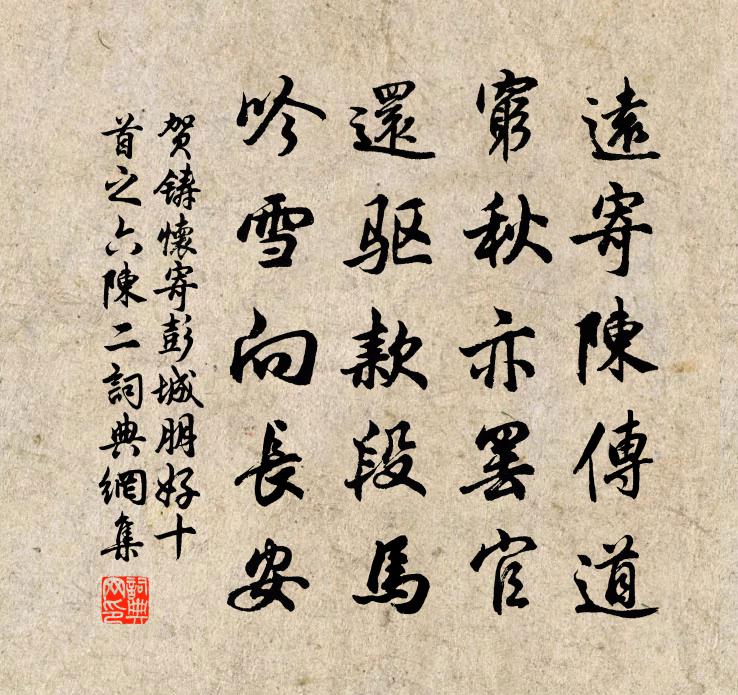 遠寄陳傳道
窮秋亦罢官
還驱款段馬
吟雪向長安
贺鑄懷寄彭城朋好十
首之六陳二詞典網集
詞典網印